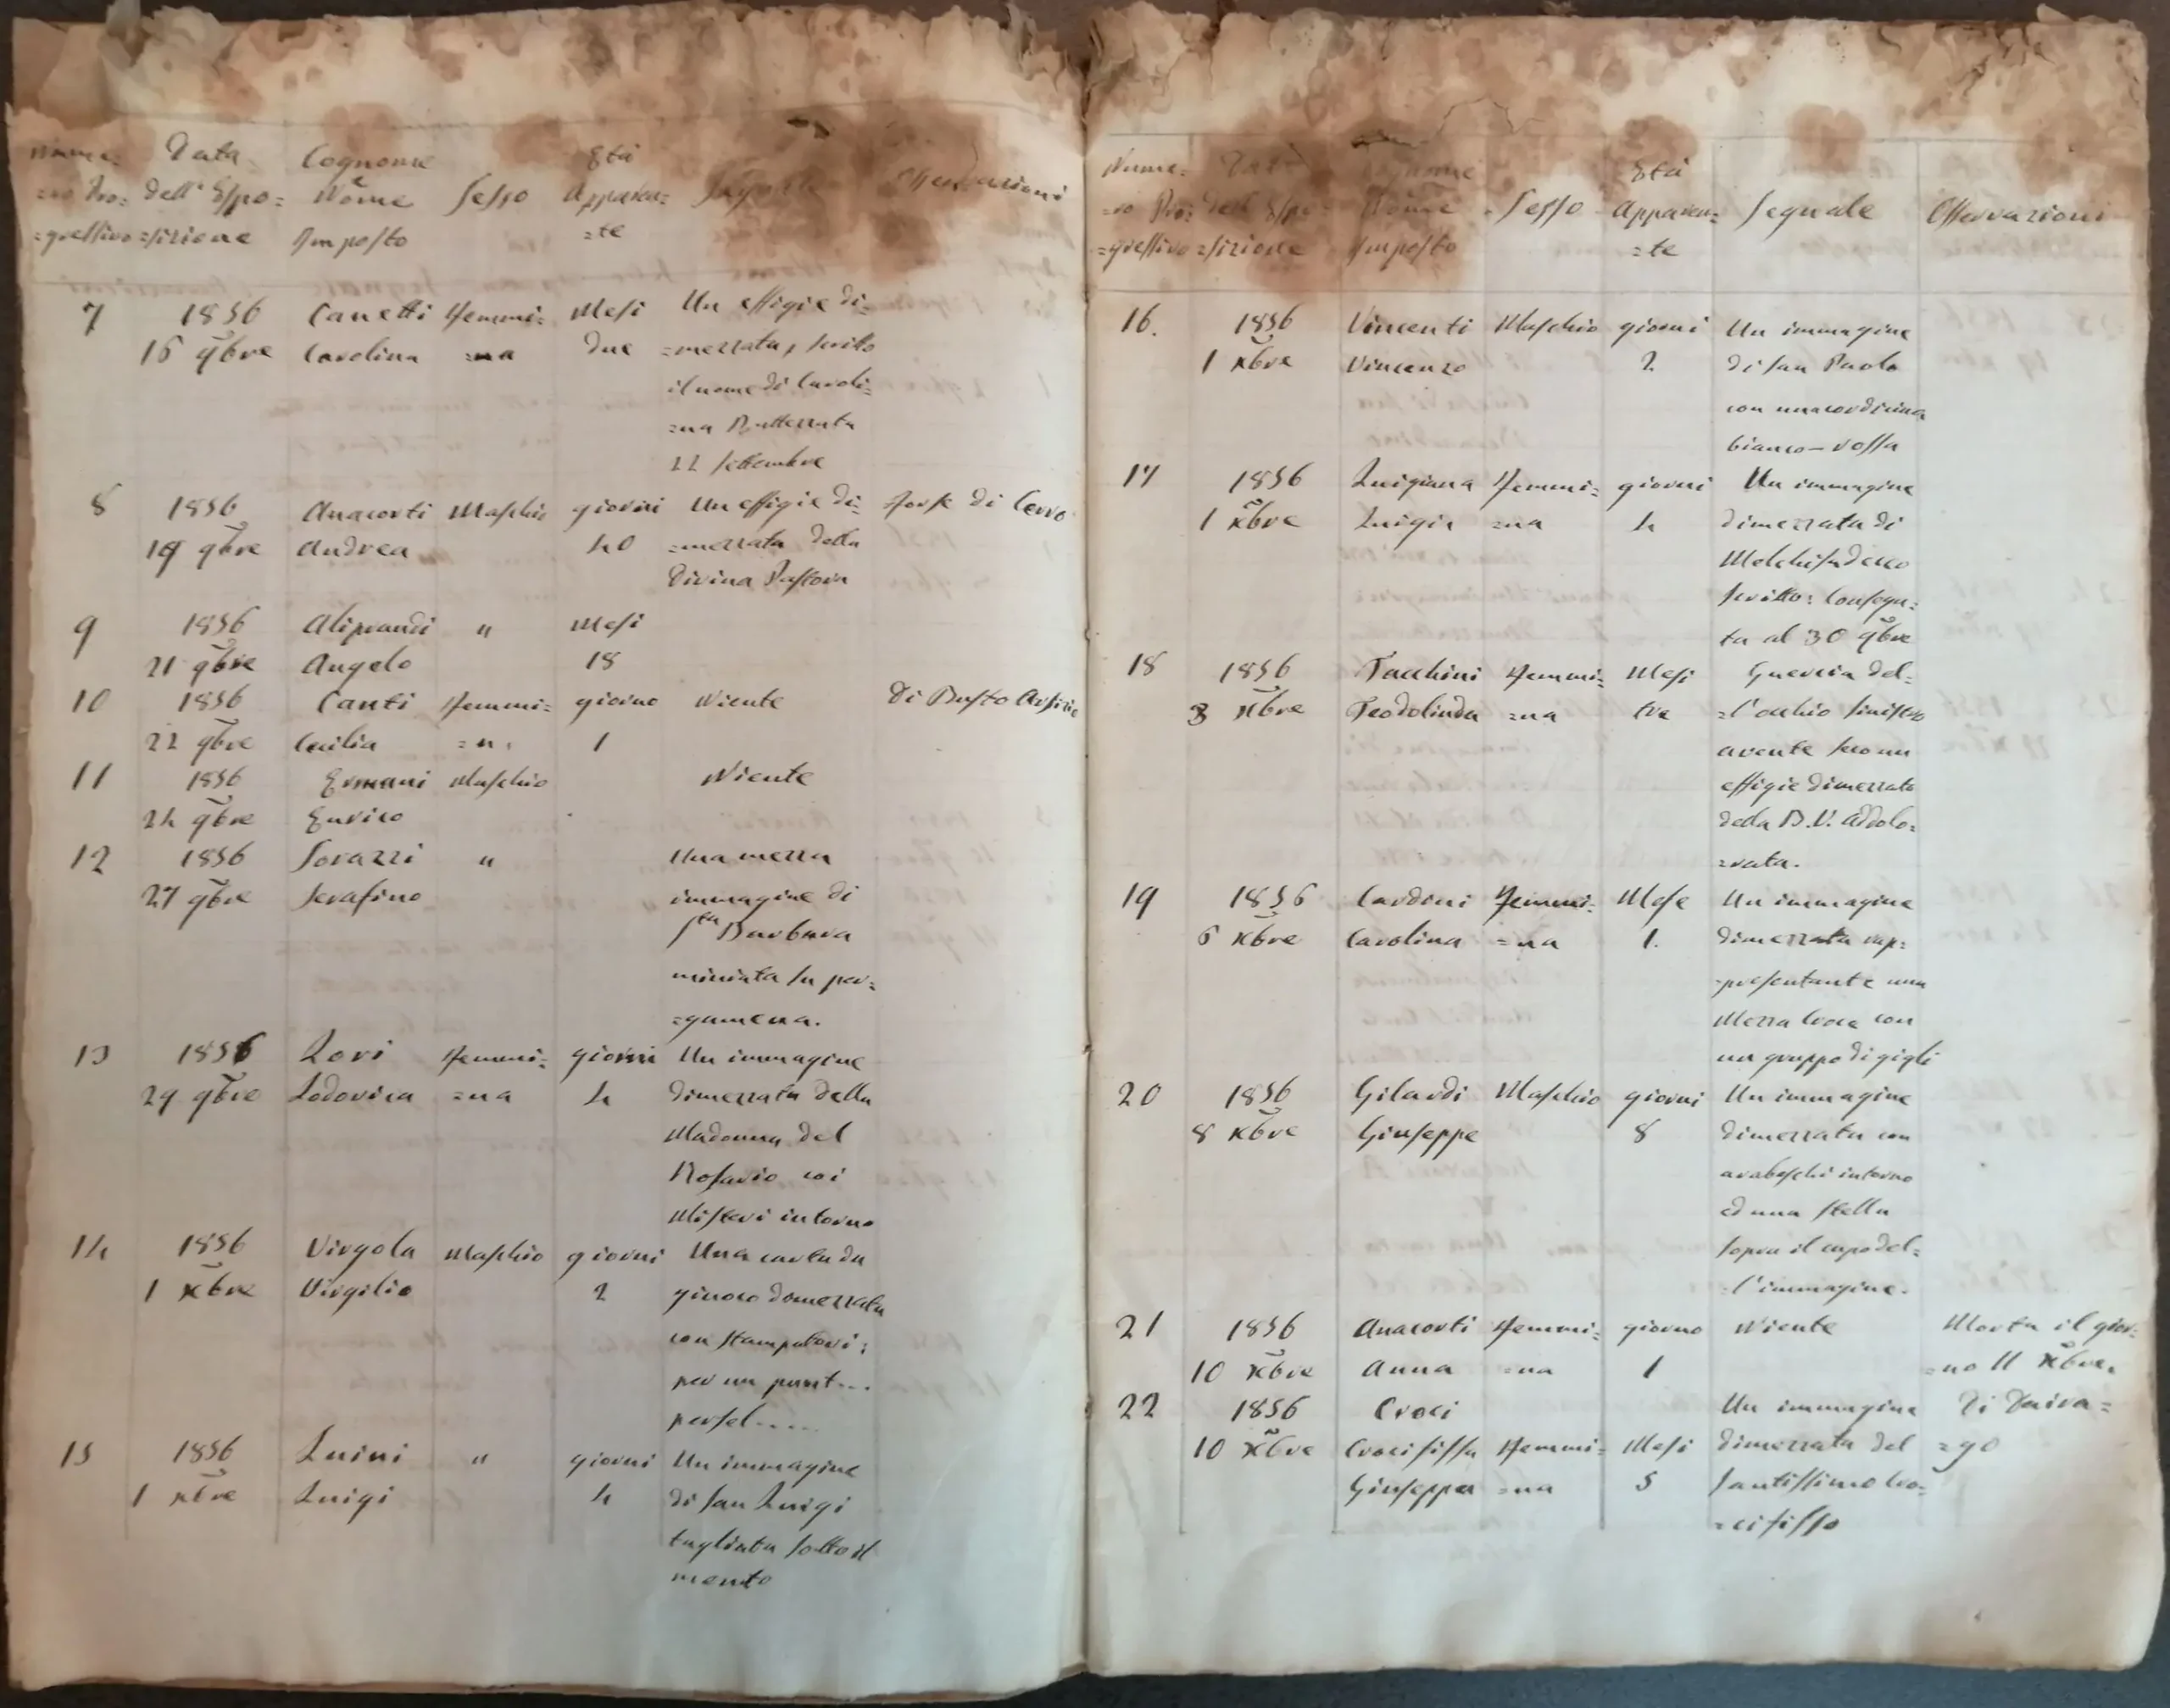 Nume= Data Cognome Età
=ro Pro= dell' Espo= Nome Sesso Apparen= Segnale Osservazioni
=gressivo =sizione Imposto =te
7 1856 Canetti Femmi= Mesi Un effigie di=
16 9bre Carolina =na due =mezzata, scrito
il nome di Caroli=
=na Battezzata
22 Settembre
8 1856 Anaconti Maschio giorni Un effigie di= Forse di Cerro
19 9bre Andrea 40 =mezzata della
Divina Pastora
9 1856 Aliprandi " Mesi
21 9bre Angelo 18
10 1856 Canti Femmi= giorno Niente Di Busto Arsizio
22 9bre Cecilia =na 1
11 1856 Ermani Maschio Niente
24 9bre Enrico
12 1856 Sorazzi " Una mezza
27 9bre Serafino immagine di
Sta Barbara
miniata su per=
=gamena.
13 1856 Lovi Femmi= giorni Un immagine
29 9bre Lodovica =na 4 dimezzata della
Madonna del
Rosario coi
Misteri intorno
14 1856 Virgola Maschio giorni Una carta da
1 xbre Virgilio 2 giuoco domezzata
con stampatovi:
per un punt...
persel.....
15 1856 Luini " giorni Un immagine
1 xbre Luigi 4 di San Luigi
tagliata sotto il
mento
Nume= Data Cognome Età
=ro Pro= dell' Espo= Nome Sesso Apparen= Segnale Osservazioni
=gressivo =sizione Imposto =te
16. 1856 Vincenti Maschio giorni Un immagine
1 xbre Vincenzo 2 di San Paolo
con una cordicina
bianco-rossa
17 1856 Luigiana Femmi= giorni Un immagine
1 xbre Luigia =na 4 dimezzata di
Melchisedecco
scritto: Consegna=
ta al 30 9bre
18 1856 Tacchini Femmi= Mesi Guercia del=
3 xbre Teodolinda =na tre =l'occhio sinistro
avente seco un
effigie dimezzata
della B. V. Addolo=
=rata.
19 1856 Cardini Femmi= Mese Un immagine
6 xbre Carolina =na 1. dimezzata rap=
=presentante una
Mezza Croce con
un gruppo di gigli
20 1856 Gilardi Maschio giorni Un immagine
8 xbre Giuseppe 8 dimezzata con
arabeschi intorno
ed una stella
sopra il capo del=
=l'immagine.
21 1856 Anaconti Femmi= giorno Niente Morta il gior=
10 xbre Anna =na 1 =no 11 xbre.
22 1856 Croci Un immagine Di Daira=
10 xbre Crocifissa Femmi= Mesi dimezzata del =go
Giuseppa =na 5 Santissimo Cro=
=cifisso